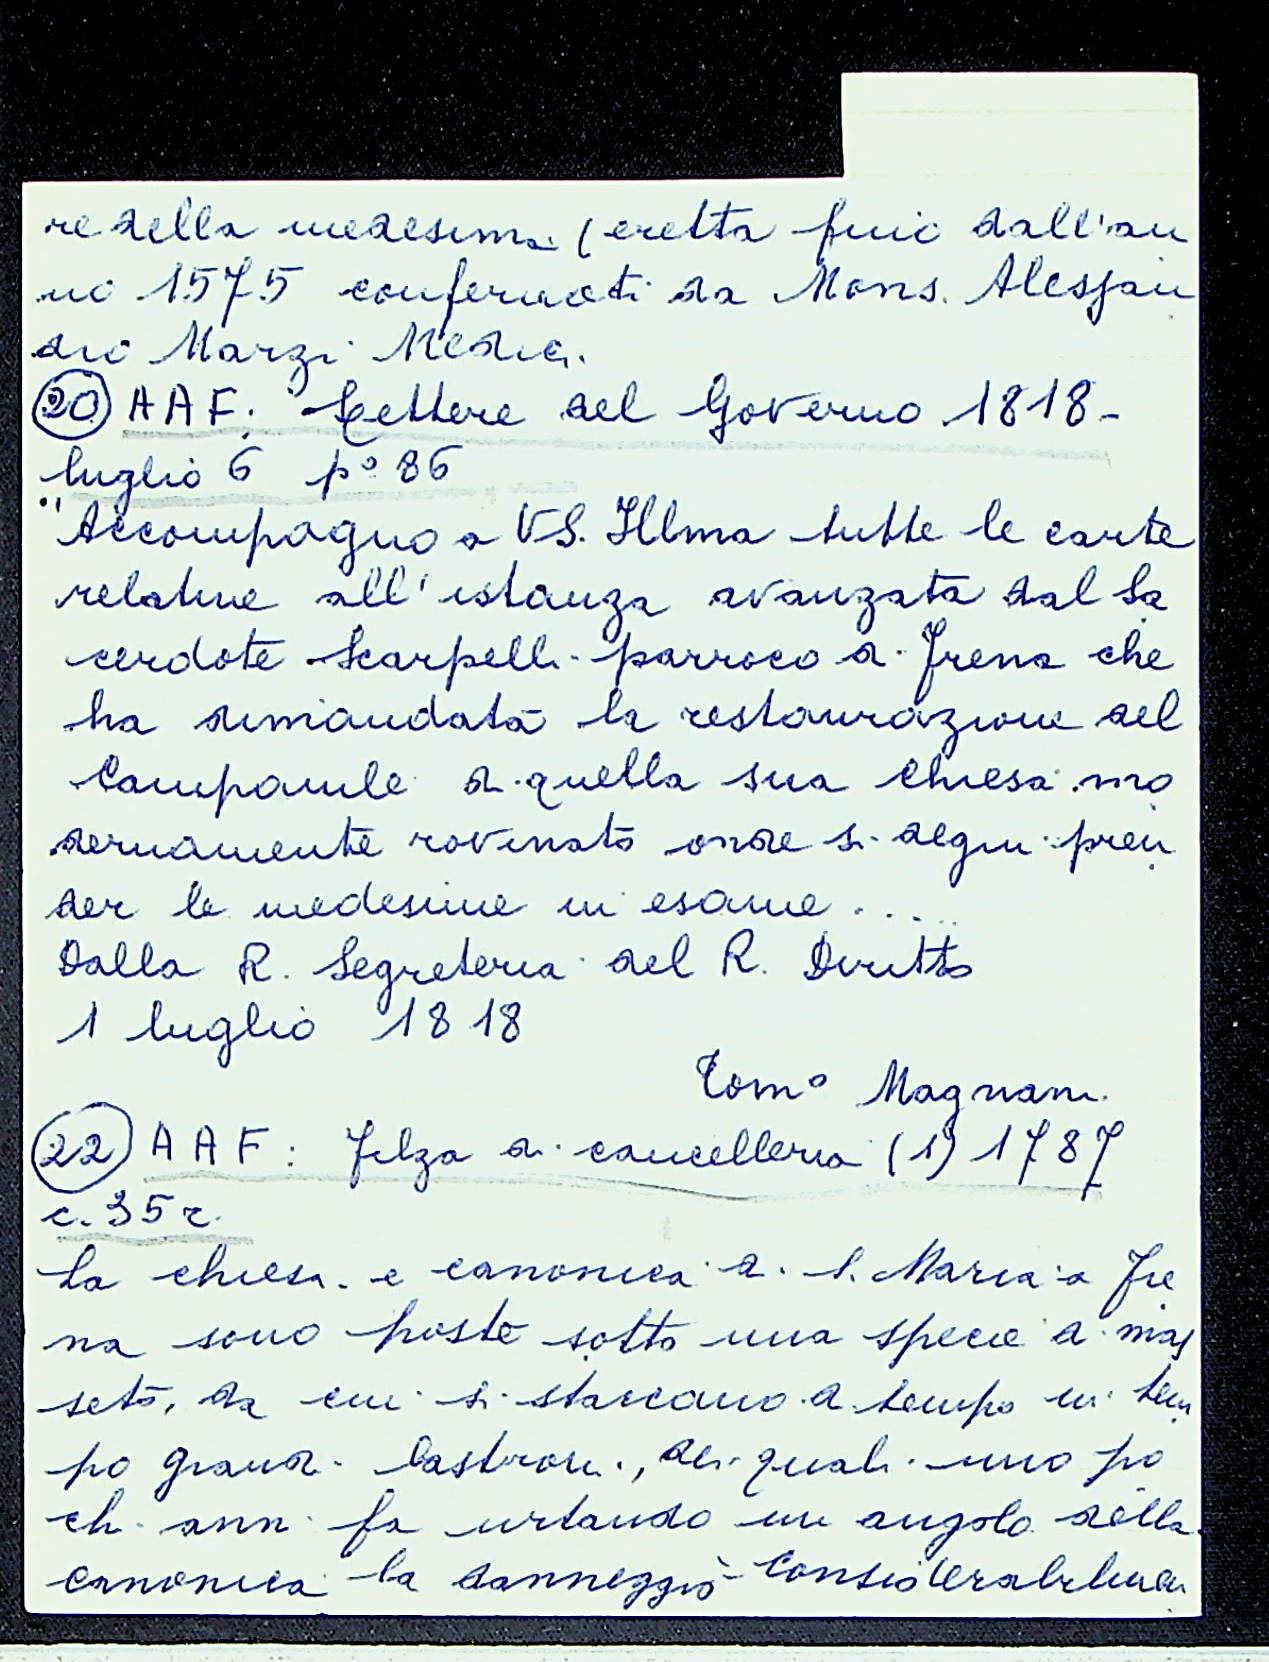 re della medesima (eretta fino dall'an
no 1575 confermati da Mons. Alessan
dro Marzi Medici.
20 AAF: Lettere del Governo 1818-
luglio 6 p° 86
"Accompagno a VS. Illma tutte le carte
relative all'istanza avanzata dal Sa
cerdote Scarpelli parroco a Frena che
ha dimandata la restaurazione del
Campanile di quella sua chiesa mo
dernamente rovinato onde si degni pren
der le medesime in esame . . . . .
Dalla R. Segreteria del R. Diritto
1 luglio 1818
Tom° Magnani
22 AAF: Filza di cancelleria (1) 1787
c. 35 r.
La chiesa e canonica di S. Maria a Fre
na sono poste sotto una specie di mas
seto, da cui si staccano di tempo in tem
po grandi Lastroni, dei quali uno po
chi anni fa urtando un angolo della
canonica la danneggiò considerabilmen